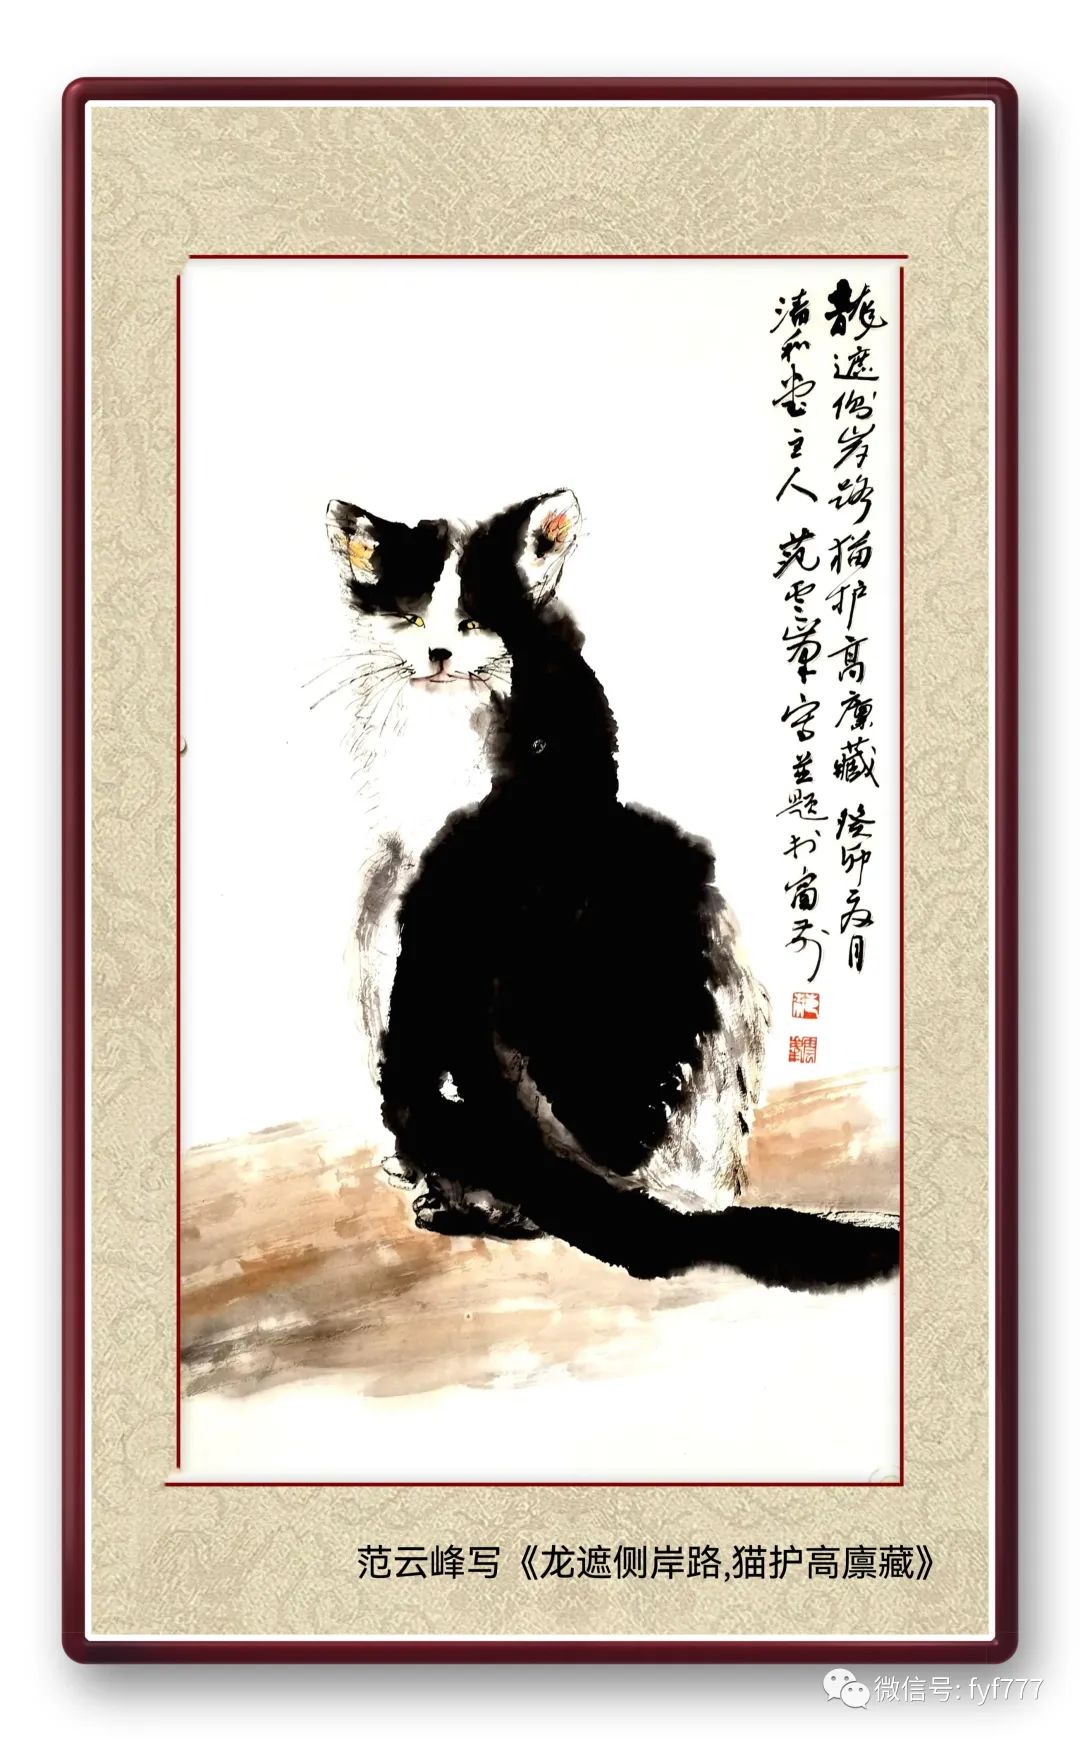 龍遮侧岸路猫护高廪藏 癸卯夏月
清和堂主人 范雲峯写並题于甯前
范云峰写《龙遮侧岸路,猫护高廪藏》
微信号: fyf777